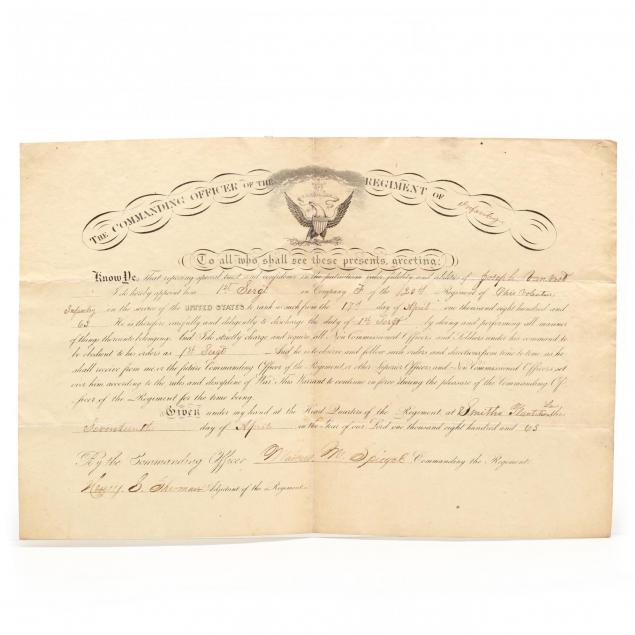 THE COMMANDING OFFICER OF THE REGIMENT OF Infantry
To all who shall see these presents, greeting:
Know Ye, That reposing special trust and confidence in the patriotism, valor, fidelity and abilities of Joseph
I do hereby appoint him 1st Sergt in Company F of the 120th Regiment of Ohio Volunteer
Infantry in the service of the UNITED STATES to rank as such from the 17th day of April one thousand eight hundred and
63 He is therefore carefully and diligently to discharge the duty of 1st Sergt by doing and performing all manner
of things thereunto belonging. And I do strictly charge and require all Non Commissioned Officers and Soldiers under his command to
be obedient to his orders as 1st Sergt And he is to observe and follow such orders and directions from time to time as he
shall receive from me, or the future Commanding Officer of the Regiment, or other Superior Officers and Non Commissioned Officers set
over him according to the rules and discipline of War. This Warrant to continue in force during the pleasure of the Commanding Of-
ficer of the Regiment for the time being.
Given under my hand at the Head Quarters of the Regiment at Smiths Plantation La
Seventeenth day of April in the Year of our Lord one thousand eight hundred and 63
By the Commanding Officer Marcus M Spiegel Commanding the Regiment
Henry E. Sherman Adjutant of the Regiment